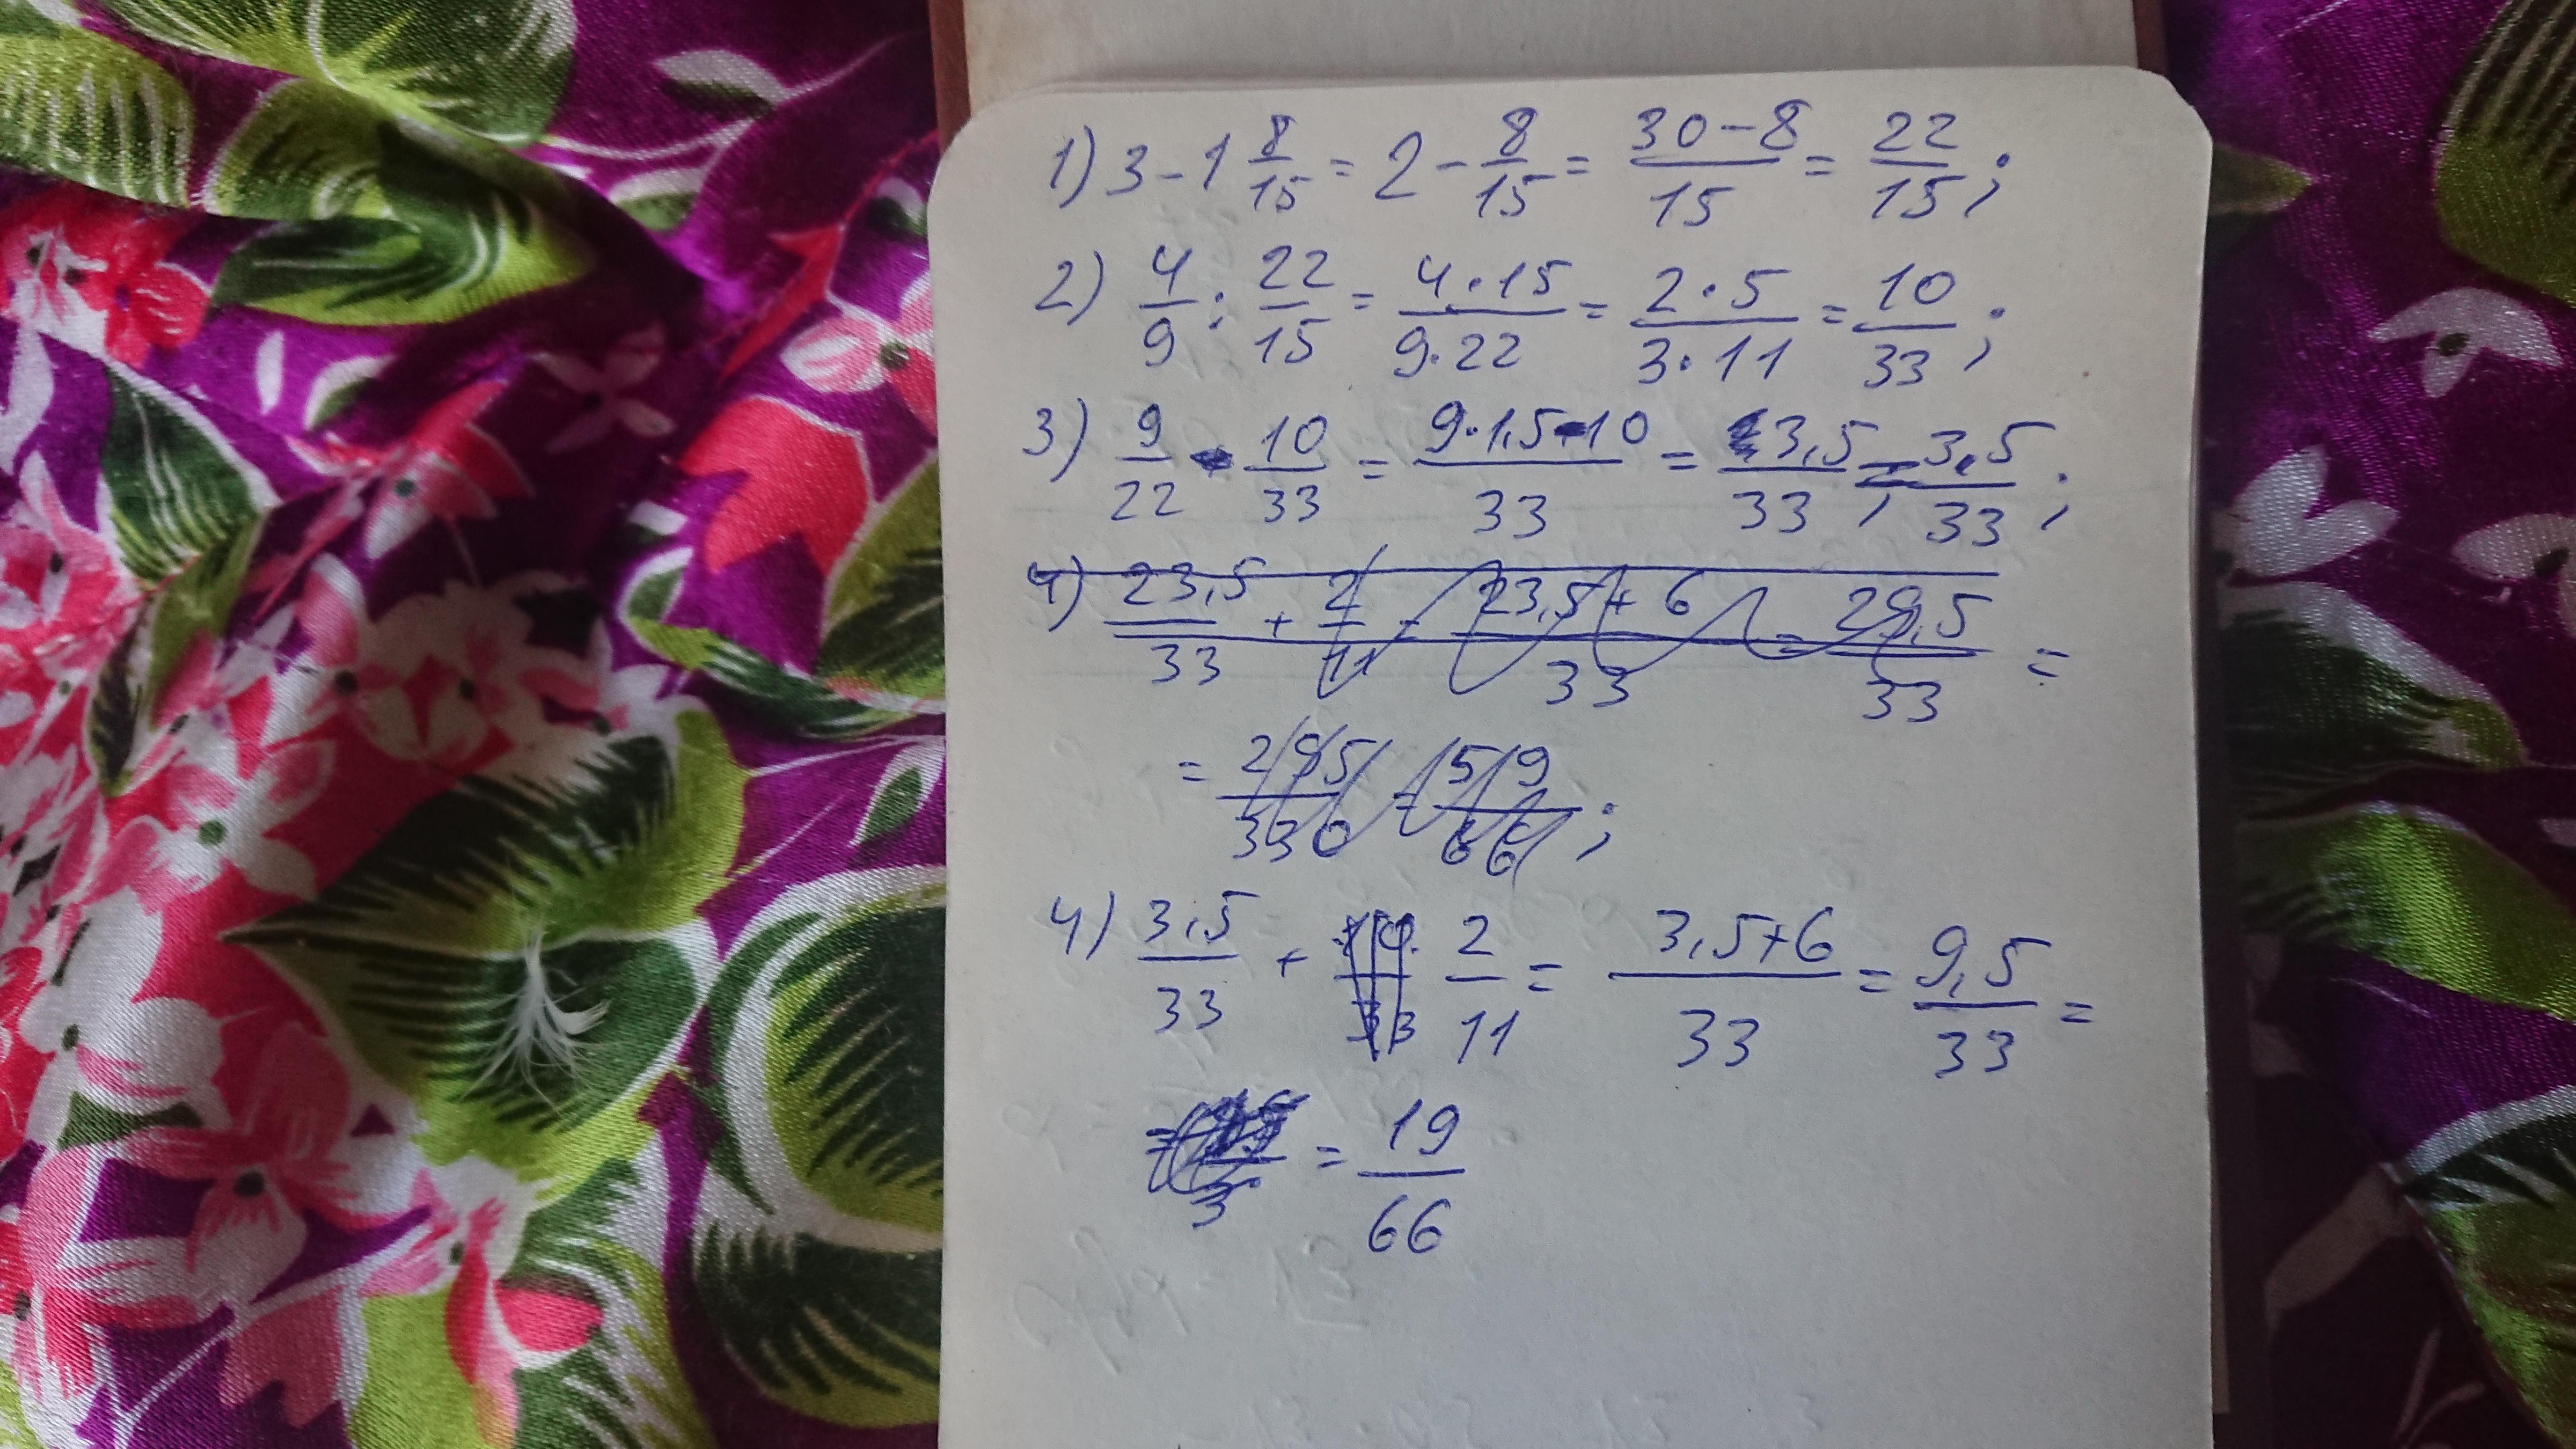 1) 3 - 1 8/15 = 2 - 8/15 = (30-8)/15 = 22/15;
2) 4/9 : 22/15 = (4·15)/(9·22) = (2·5)/(3·11) = 10/33;
3) 9/22 - 10/33 = (9·1,5-10)/33 = 3,5/33 = 3,5/33;
4) 23,5/33 + 2/11 = (23,5+6)/33 = 29,5/33 =
= 295/330 = 59/66;
4) 3,5/33 + 2/11 = (3,5+6)/33 = 9,5/33 =
= 19/66